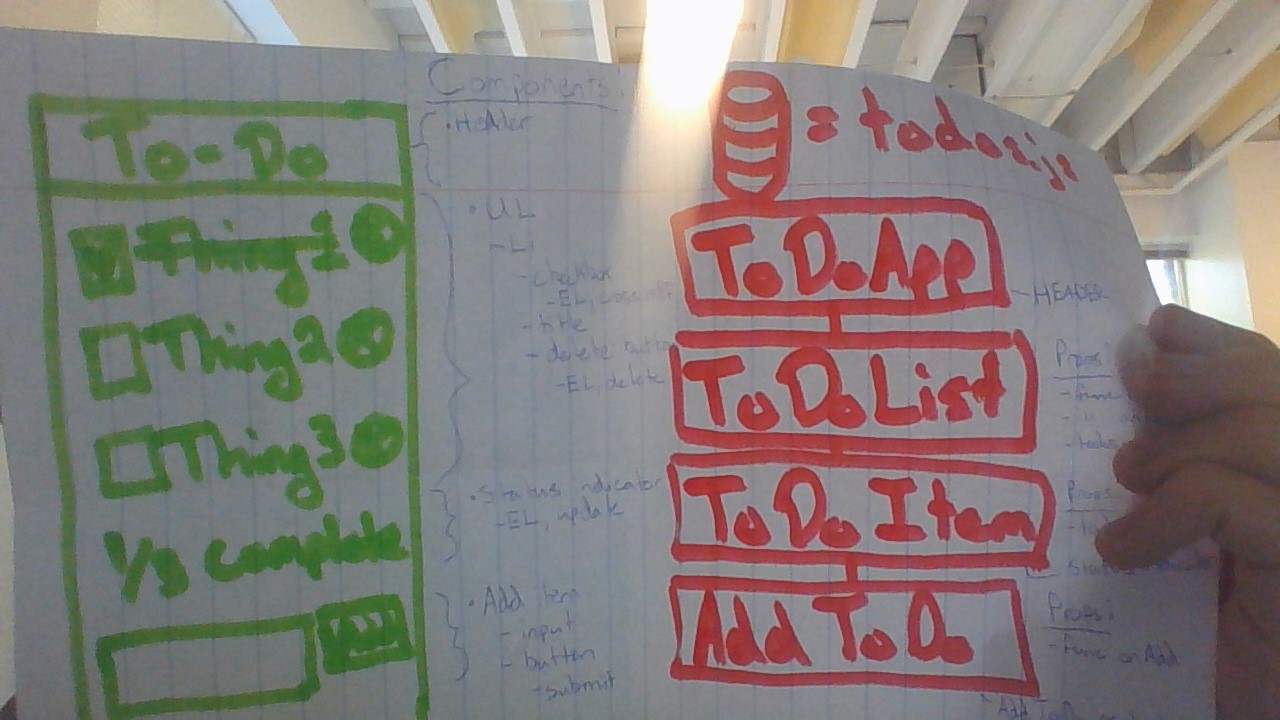 To-Do
Thing 1
Thing 2
Thing 3
1/3 complete
Add
Components:
• Header
• UL
- Li
- checkbox
- EL, cross off
- title
- delete button
- EL, delete
• Status indicator
- EL, update
• Add item
- input
- button
- submit
= todos.js
ToDoApp
HEADER
ToDoList
Props:
- func
- "
- todos
ToDo Item
Props:
Status
Add ToDo
Props:
- func onAdd
Add ToDo